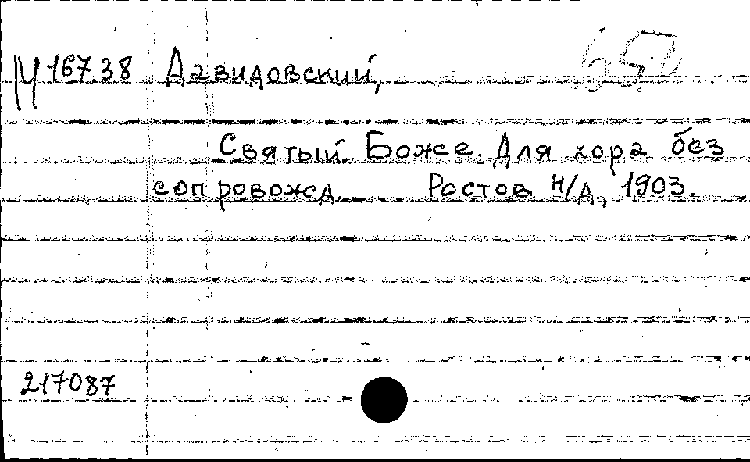 Ц 16738 Давидовский,
Святый Боже. Для хора без
сопровожд. Ростов н/Д, 1903.
217087